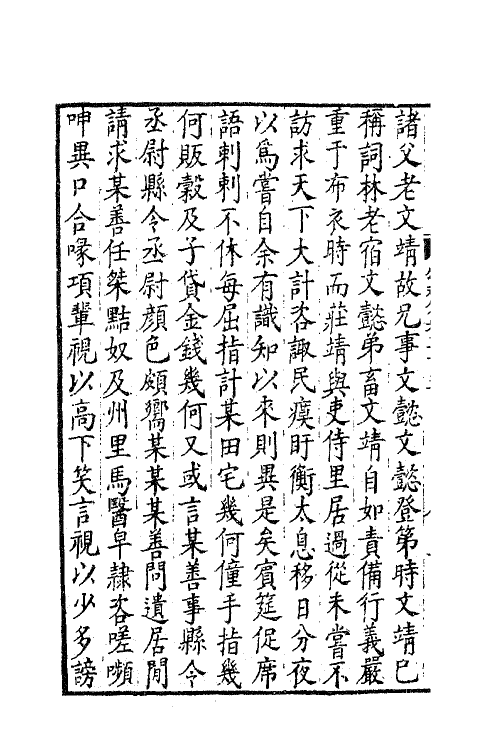 諸父老文靖故兄事文懿文懿登第時文靖已
稱詞林老宿文懿弟畜文靖自如責備行義嚴
重于布衣時而莊靖與吏侍里居過從未嘗不
訪求天下大計咨諏民瘼盱衡太息移日分夜
以爲嘗自余有識知以來則異是矣賓筵促席
語刺刺不休每屈指計某田宅幾何僮手指幾
何販穀及子貸金錢幾何又或言某善事縣令
丞尉縣令丞尉顔色頗嚮某某某善問遺居閒
請求某善任桀黠奴及州里馬醫皁隷咨嗟嚬
呻異口合喙項輩視以高下笑言視以少多謗